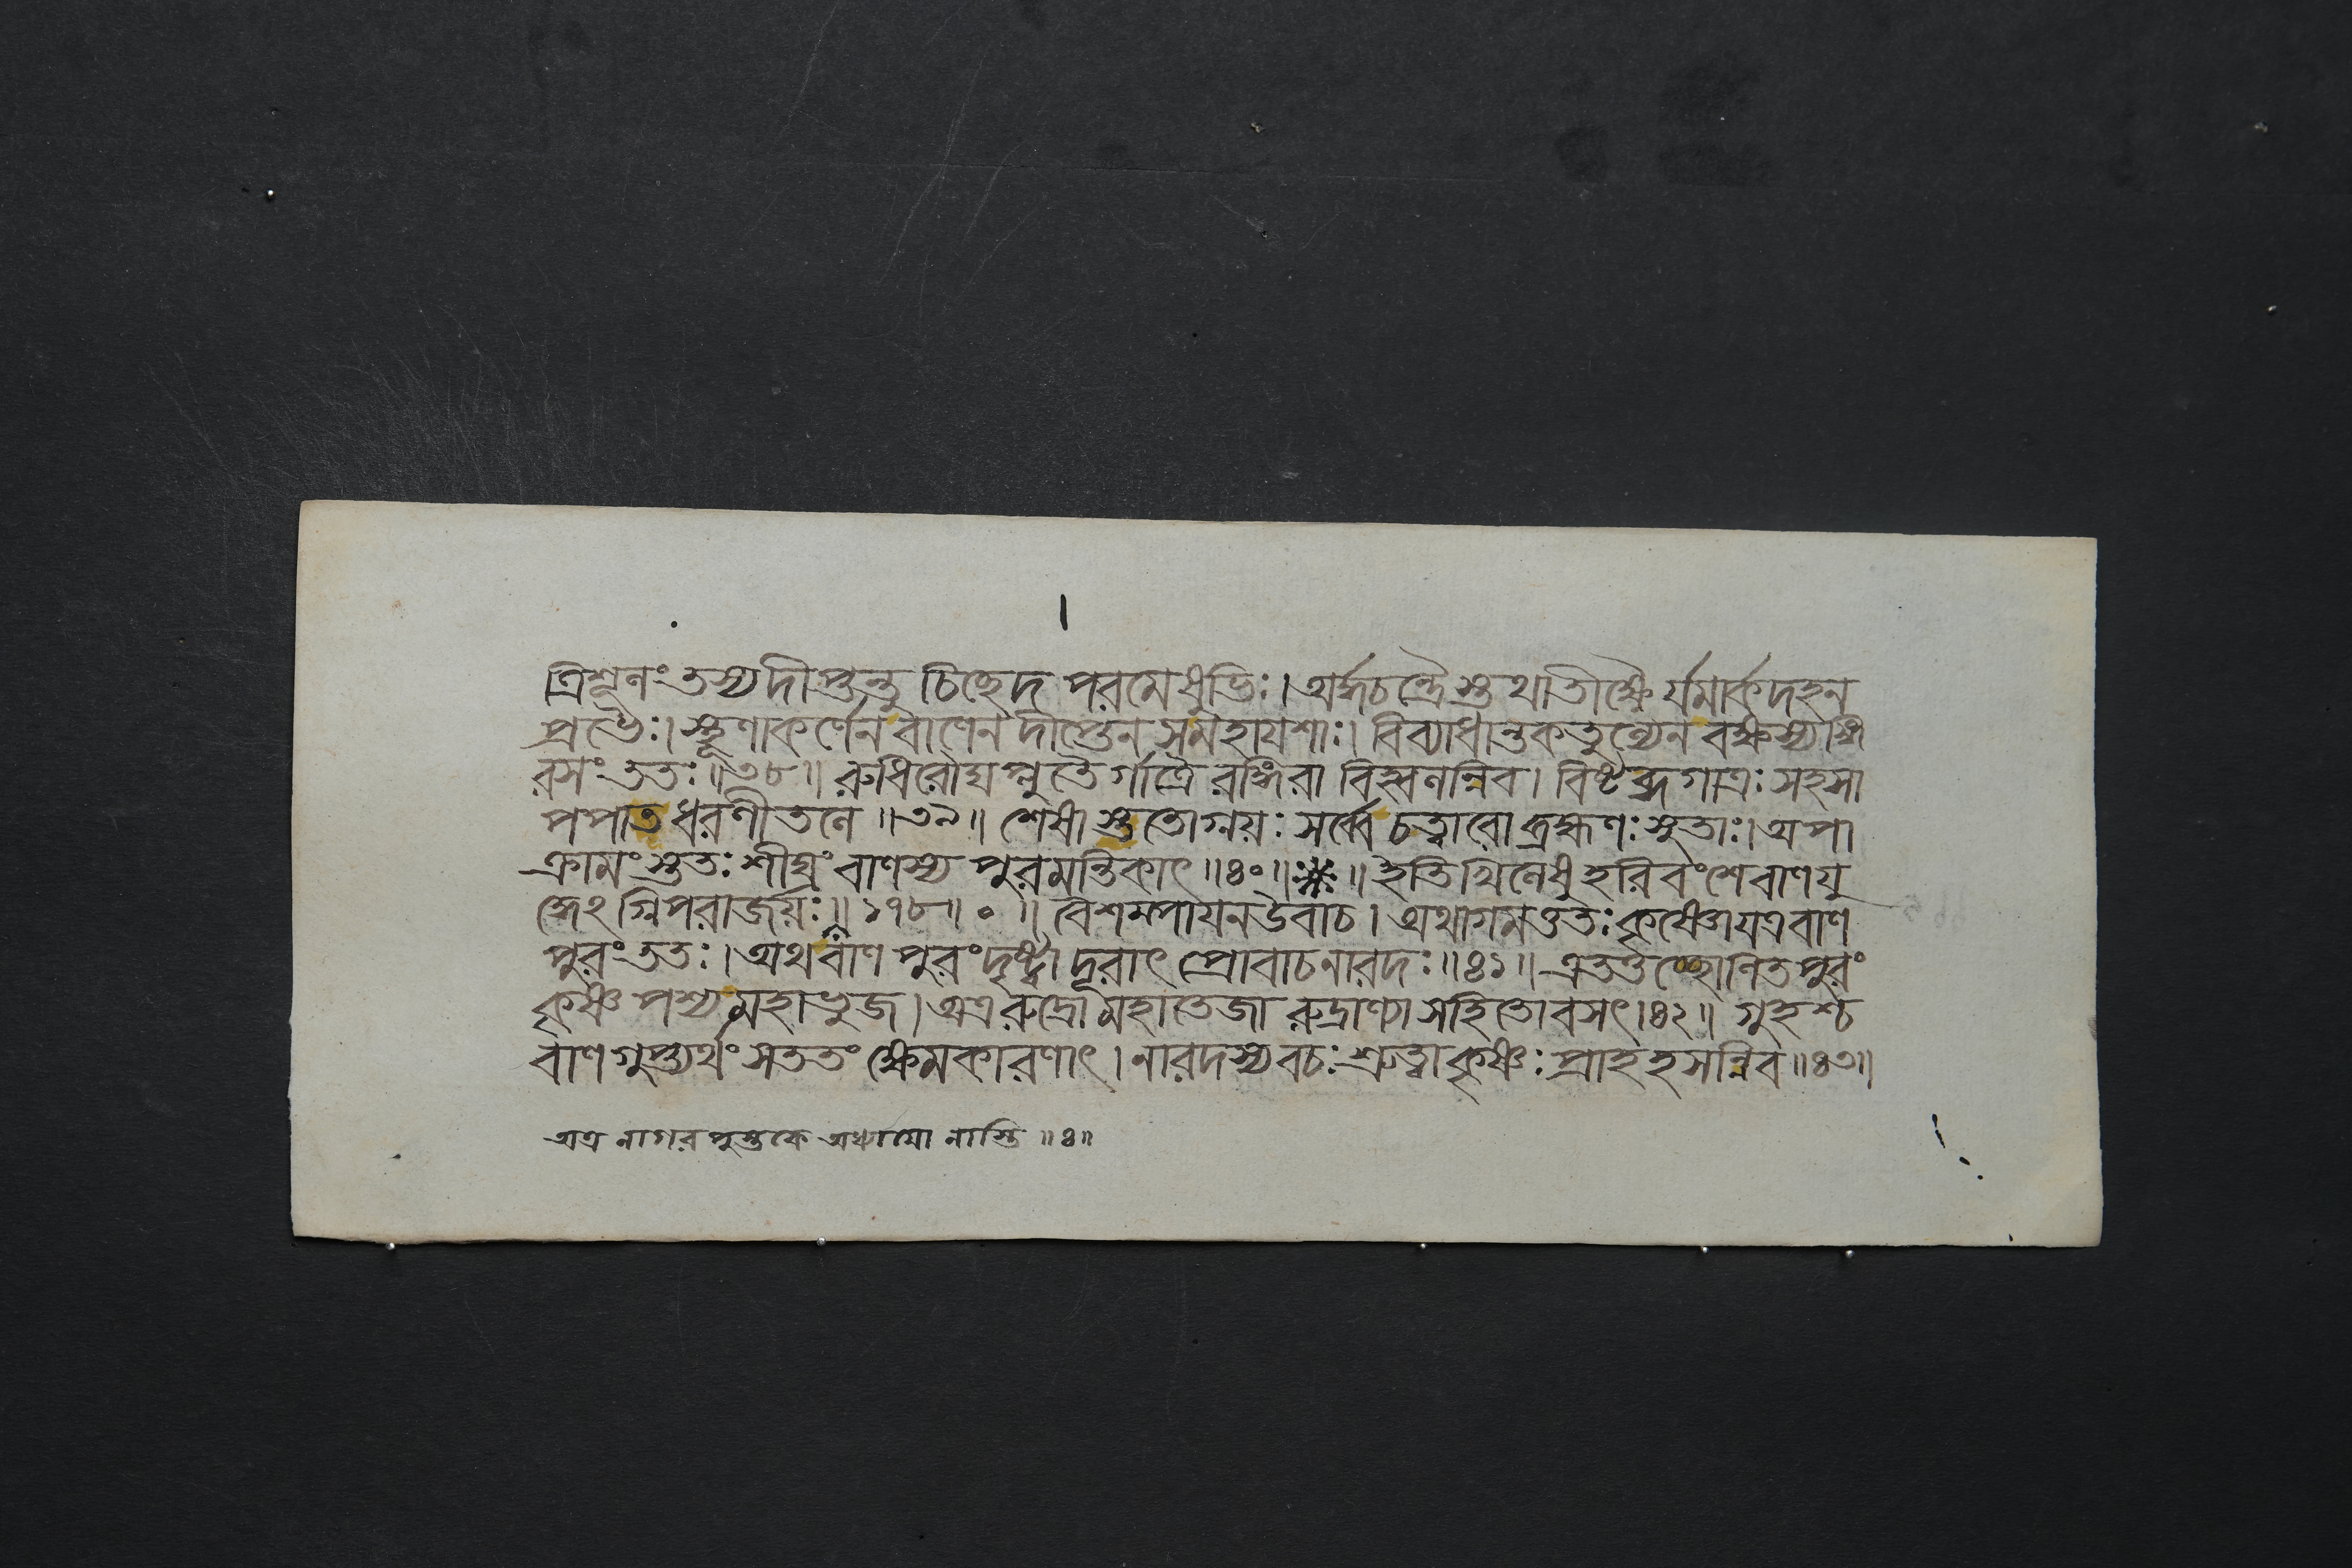 ত্রিশূলং তস্য দীপ্তন্তু চিচ্ছেদ পরমেষুভিঃ। অর্দ্ধচন্দ্রৈস্তথাতীক্ষ্ণৈর্যমার্কদহন
প্রভৈঃ। স্থূণাকর্ণেন বাণেন দীপ্তেন সমহাযশাঃ। বিব্যাধান্তকতুল্যেন বক্ষস্যঙ্গি
রসং ততঃ॥৩৮॥ রুধিরৌঘপ্লুতৈর্গাত্রৈরঙ্গিরা বিহ্বলন্নিব। বিষ্টব্ধগাত্রঃ সহসা
পপাত ধরণীতলে॥৩৯॥ শেষাস্ততোগ্নয়ঃ সর্ব্বে চত্বারো ব্রহ্মণঃ সুতাঃ। অপা
ক্রামংস্ততঃ শীঘ্রং বাণস্য পুরমন্তিকাৎ॥৪০॥※॥ ইতি খিলেষু হরিবংশে বাণযু
দ্ধেঽগ্নিপরাজয়ঃ॥১৭৮॥০॥ বৈশম্পায়ন উবাচ। অথাগমত্ততঃ কৃষ্ণো যত্র বাণ
পুরং ততঃ। অথ বাণপুরং দৃষ্ট্বা দূরাৎ প্রোবাচ নারদঃ॥৪১॥ এতত্তচ্ছোণিতপুরং
কৃষ্ণ পশ্য মহাভুজ। অত্র রুদ্রো মহাতেজা রুদ্রাণ্যা সহিতোবসৎ।৪২॥ গুহশ্চ
বাণগুপ্ত্যর্থং সততং ক্ষেমকারণাৎ। নারদস্য বচঃ শ্রুত্বা কৃষ্ণঃ প্রাহ হসন্নিব॥৪৩॥
অত্র নাগরপুস্তকে অধ্যায়ো নাস্তি॥৪॥